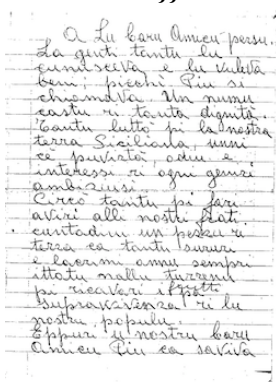 A Lu Caru Amicu persu.
La genti tantu lu
canusceva e lu vuleva
beni, picchì Piu si
chiamava. Un numu
castu ri tanta dignità.
Tantu luttò pi la nostra
terra Siciliana, unni
c'è puvirtà, odiu e
interessi ri ogni geniri
ambiziusi.
Circò tantu pi fari
aviri alli nostri frati
cuntadini un pezzu ri
terra ca tantu sururi
e lacrimi annu sempri
ittatu nallu turrenu
pi ricavari i frutti
supravvivenza ri lu
nostru populu.
Eppuri u nostru caru
Amicu Piu ca saviva